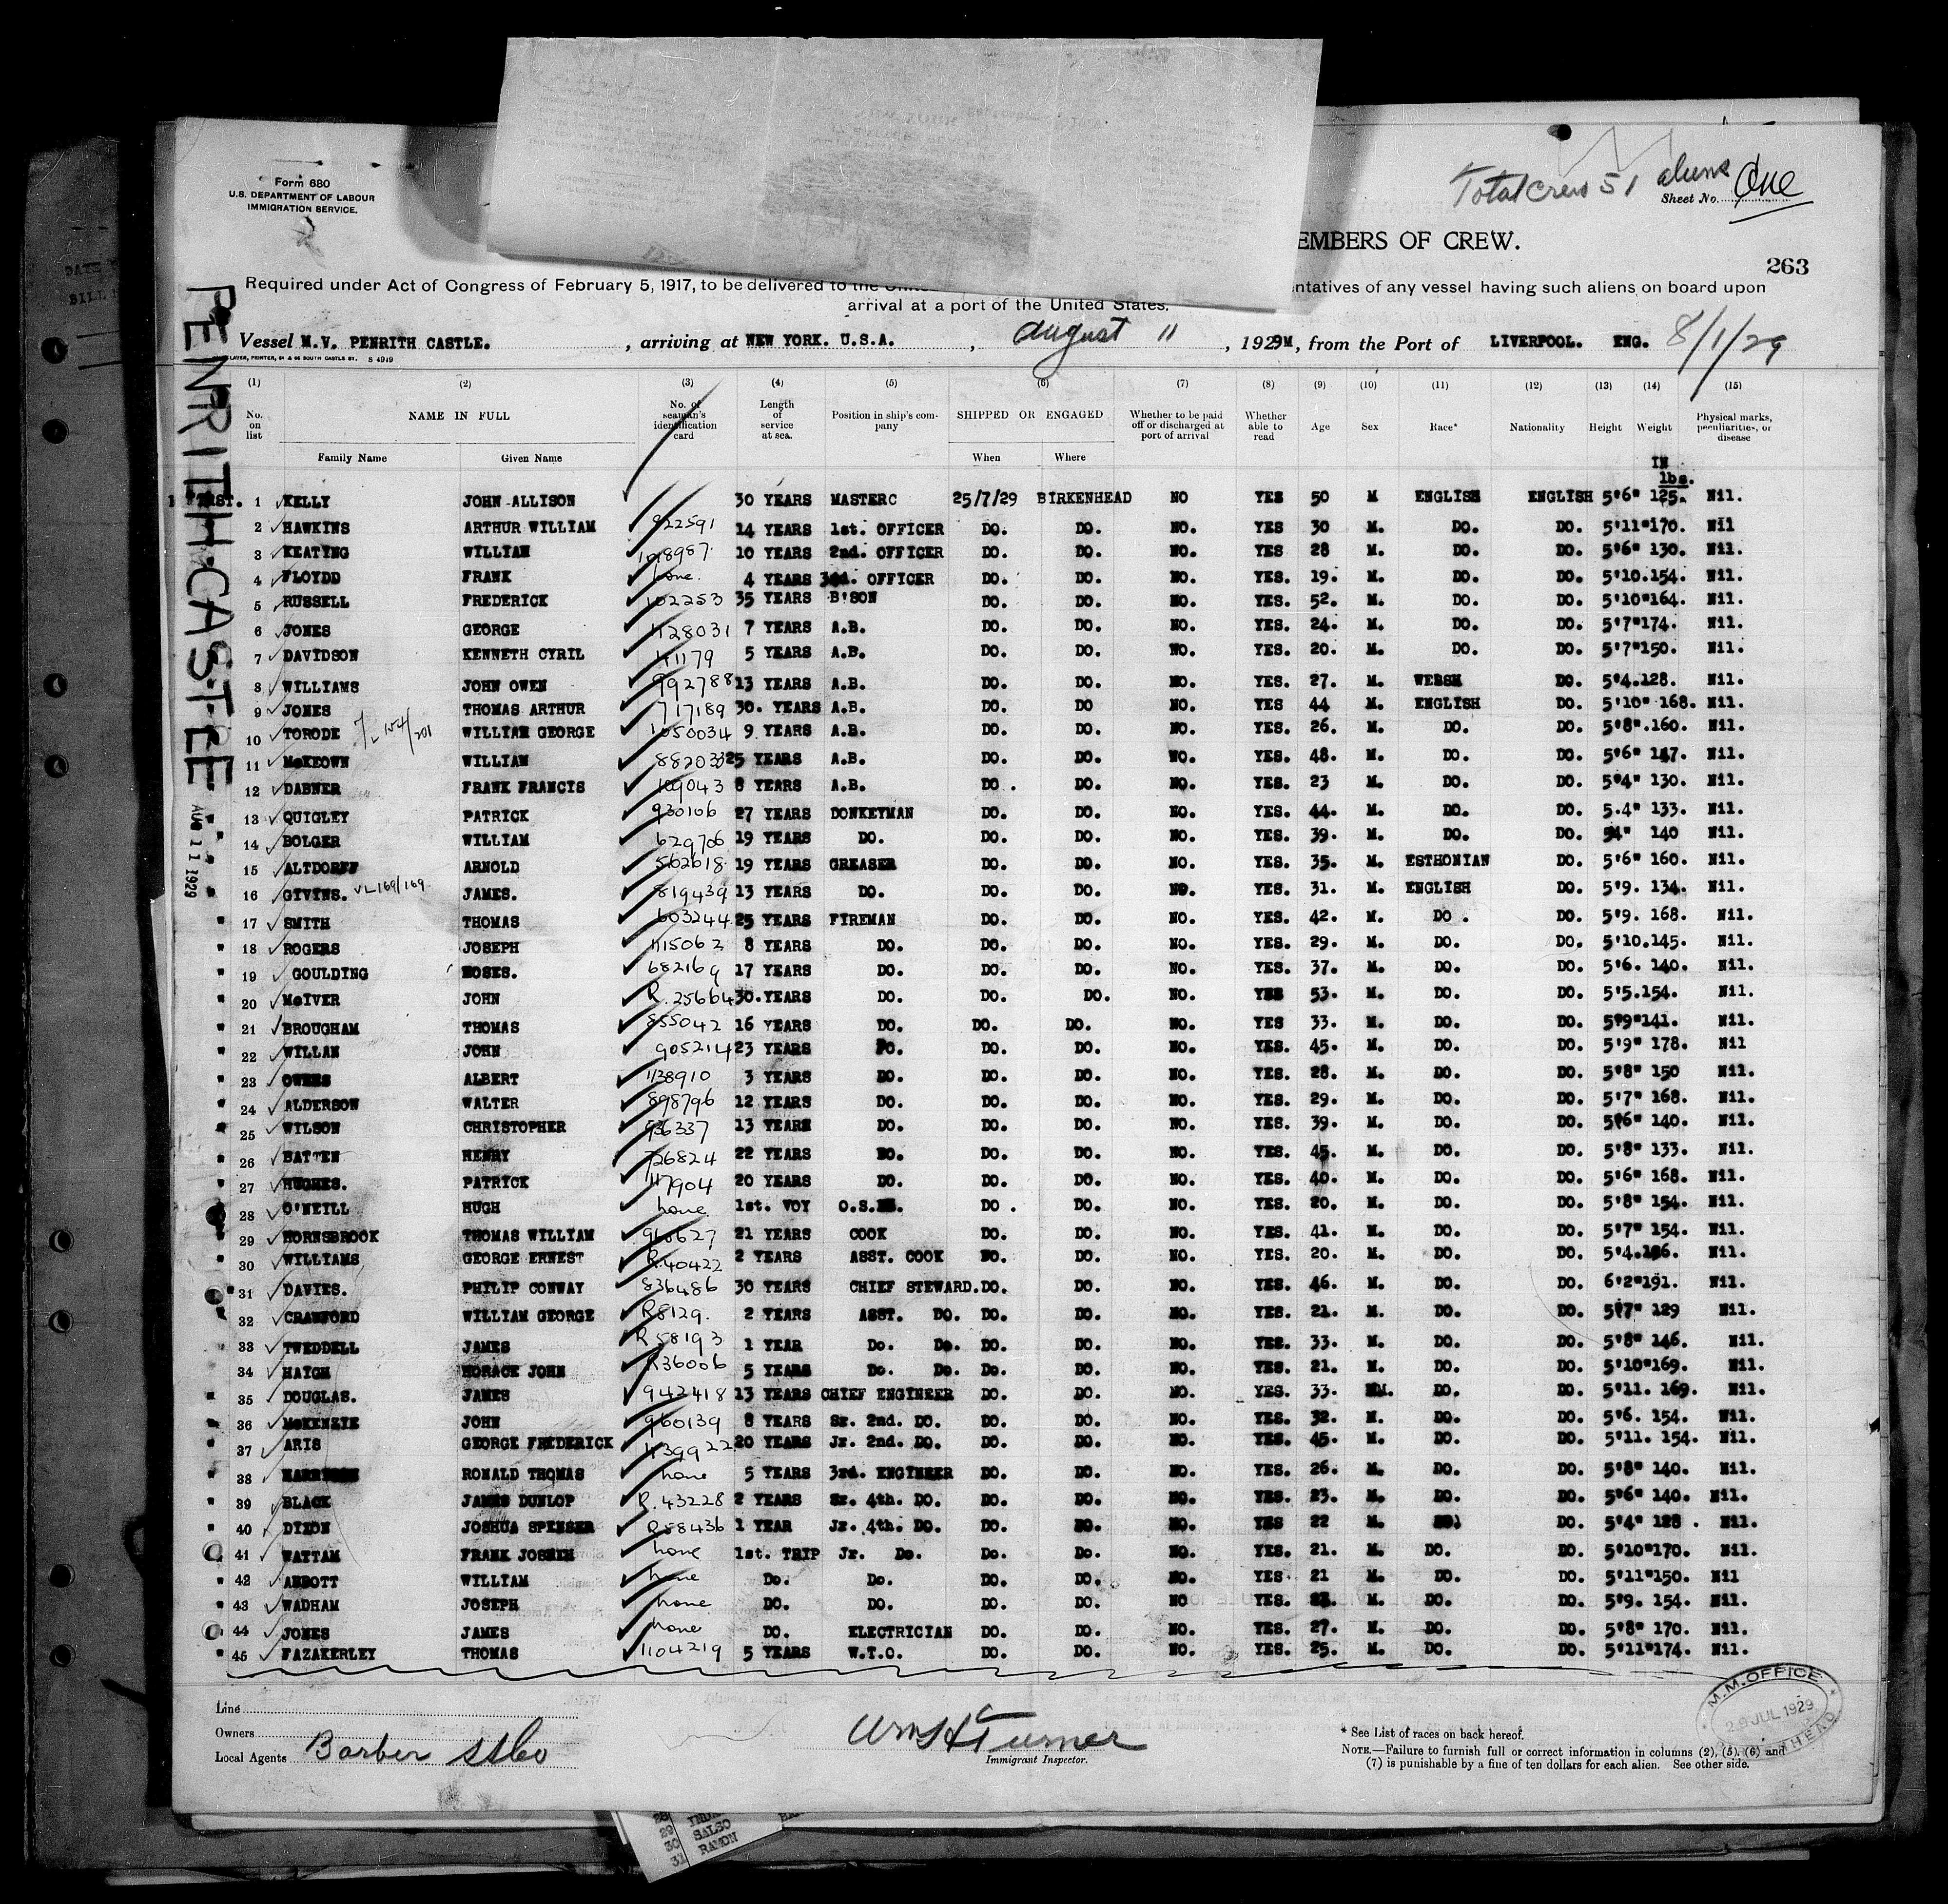 Form 680
U.S. DEPARTMENT OF LABOUR
IMMIGRATION SERVICE.
Total crew 51 aliens
Sheet No. One
EMBERS OF CREW.
263
Required under Act of Congress of February 5, 1917, to be delivered to the ntatives of any vessel having such aliens on board upon
arrival at a port of the United States.
Vessel M.V. PENRITH CASTLE. , arriving at NEW YORK. U.S.A. , August 11 , 1929 , from the Port of LIVERPOOL. ENG. 8/1/29
PENRITH CASTLE
AUG 11 1929
(1) (2) (3) (4) (5) (6) (7) (8) (9) (10) (11) (12) (13) (14) (15)
No. on list NAME IN FULL No. of seaman's identification card Length of service at sea. Position in ship's company SHIPPED OR ENGAGED Whether to be paid off or discharged at port of arrival Whether able to read Age Sex Race* Nationality Height Weight Physical marks, peculiarities, or disease
Family Name Given Name When Where
IN
lbs.
1 KELLY JOHN ALLISON 30 YEARS MASTER 25/7/29 BIRKENHEAD NO YES 50 M ENGLISH ENGLISH 5'6" 125. Nil.
2 HAWKINS ARTHUR WILLIAM 922591 14 YEARS 1st. OFFICER DO. DO. NO. YES 30 M. DO. DO. 5'11"170. Nil
3 KEATING WILLIAM 1018987. 10 YEARS 2nd. OFFICER DO. DO. NO. YES 28 M. DO. DO. 5'6" 130. Nil.
4 FLOYDD FRANK none. 4 YEARS 3rd. OFFICER DO. DO. NO. YES. 19. M. DO. DO. 5'10.154. Nil.
5 RUSSELL FREDERICK 102253 35 YEARS B'SON DO. DO. NO. YES. 52. M. DO. DO. 5'10"164. Nil.
6 JONES GEORGE 1128031 7 YEARS A.B. DO. DO. NO. YES. 24. M. DO. DO. 5'7"174. Nil.
7 DAVIDSON KENNETH CYRIL 5 YEARS A.B. DO. DO. NO. YES. 20. M. DO. DO. 5'7"150. Nil.
8 WILLIAMS JOHN OWEN 992788 13 YEARS A.B. DO. DO. NO. YES. 27. M. WERSH DO. 5'4.128. Nil.
9 JONES THOMAS ARTHUR 717189 30. YEARS A.B. DO. DO NO. YES 44 M. ENGLISH DO. 5'10" 168. Nil.
10 TORODE WILLIAM GEORGE 1050034 9 YEARS A.B. DO. DO. NO. YES. 26. M. DO. DO. 5'8".160. Nil.
11 McKEOWN WILLIAM 882033 25 YEARS A.B. DO. DO. NO. YES. 48. M. DO. DO. 5'6" 147. Nil.
12 DABNER FRANK FRANCIS 109043 8 YEARS A.B. DO. DO. NO. YES. 23 M. DO. DO. 5'4" 130. Nil.
13 QUIGLEY PATRICK 930106 27 YEARS DONKEYMAN DO. DO. NO. YES. 44. M. DO. DO. 5.4" 133. Nil.
14 BOLGER WILLIAM 629706 19 YEARS DO. DO. DO. NO. YES. 39. M. DO. DO. 54" 140 Nil.
15 ALTDORFF ARNOLD 562618 19 YEARS GREASER DO. DO. NO. YES. 35. M. ESTHONIAN DO. 5'6" 160. Nil.
16 GIVINS. VL169/169 JAMES. 819439 13 YEARS DO. DO. DO. NO. YES. 31. M. ENGLISH DO. 5'9. 134. Nil.
17 SMITH THOMAS 603244 25 YEARS FIREMAN DO. DO. NO. YES. 42. M. DO. DO. 5'9. 168. Nil.
18 ROGERS JOSEPH 1115062 8 YEARS DO. DO. DO. NO. YES. 29. M. DO. DO. 5'10.145. Nil.
19 GOULDING MOSES. 682169 17 YEARS DO. DO. DO. NO. YES. 37. M. DO. DO. 5'6. 140. Nil.
20 McIVER JOHN R.25664 30.YEARS DO. DO. DO. NO. YES 53. M. DO. DO. 5'5.154. Nil.
21 BROUGHAM THOMAS 855042 16 YEARS DO. DO. DO. NO. YES 33. M. DO. DO. 5'9"141. Nil.
22 WILLAN JOHN 905214 23 YEARS DO. DO. DO. NO. YES. 45. M. DO. DO. 5'9" 178. Nil
23 OWENS ALBERT 1138910 3 YEARS DO. DO. DO. NO. YES. 28. M. DO. DO. 5'8" 150 Nil.
24 ALDERSON WALTER 898796 12 YEARS DO. DO. DO. NO. YES. 29. M. DO. DO. 5'7" 168. Nil.
25 WILSON CHRISTOPHER 936337 13 YEARS DO. DO. DO. NO. YES. 39. M. DO. DO. 5'6" 140. Nil.
26 BATTEN HENRY 726824 22 YEARS DO. DO. DO. NO. YES. 45. M. DO. DO. 5'8" 133. Nil.
27 HUGHES. PATRICK 1117904 20 YEARS DO. DO. DO. NO. YES. 40. M. DO. DO. 5'6" 168. Nil.
28 O'NEILL HUGH none 1st. VOY O.S. DO. DO. NO. YES. 20. M. DO. DO. 5'8" 154. Nil.
29 HORNSBROOK THOMAS WILLIAM 21 YEARS COOK DO. DO. NO. YES. 41. M. DO. DO. 5'7" 154. Nil.
30 WILLIAMS GEORGE ERNEST R.40422 2 YEARS ASST. COOK DO. DO. NO. YES. 20. M. DO. DO. 5'4. Nil.
31 DAVIES. PHILIP CONWAY 836486 30 YEARS CHIEF STEWARD. DO. DO. NO. YES. 46. M. DO. DO. 6'2"191. Nil.
32 CRAWFORD WILLIAM GEORGE R8129. 2 YEARS ASST. DO. DO. DO. NO. YES. 21. M. DO. DO. 5'7" 129 Nil.
33 TWEDDELL JAMES R58193 1 YEAR Do. Do. DO. DO. NO. YES. 33. M. DO. DO. 5'8" 146. Nil.
34 HAIGH HORACE JOHN R36006 5 YEARS Do. Do. Do. DO. NO. YES. 21. M. DO. DO. 5'10"169. Nil.
35 DOUGLAS. JAMES 942418 13 YEARS CHIEF ENGINEER DO. DO. NO. YES. 33. M. DO. DO. 5'11. 169. Nil.
36 McKENZIE JOHN 960139 8 YEARS Sr. 2nd. DO. DO. DO. NO. YES. 32. M. DO. DO. 5'6. 154. Nil.
37 ARIS GEORGE FREDERICK 1139922 20 YEARS Jr. 2nd. DO. DO. DO. NO. YES. 45. M. DO. DO. 5'11. 154. Nil.
38 HARRISON RONALD THOMAS none 5 YEARS 3rd. ENGINEER DO. DO. NO. YES. 26. M. DO. DO. 5'8" 140. Nil.
39 BLACK JAMES DUNLOP R.43228 2 YEARS Sr. 4th. DO. DO. DO. NO. YES. 23. M. DO. DO. 5'6" 140. Nil.
40 DIXON JOSHUA SPENSER R58436 1 YEAR Jr. 4th. DO. DO. DO. NO. YES 22 M. DO. 5'4" 128 . Nil.
41 WATTAM FRANK none 1st. TRIP Jr. Do. Do. Do. NO. YES. 21. M. DO. DO. 5'10"170. Nil.
42 ABBOTT WILLIAM none Do. Do. DO. DO. NO. YES. 21 M. DO. DO. 5'11"150. Nil
43 WADHAM JOSEPH none DO. DO. DO. DO. NO YES. M. DO. DO. 5'9. 154. Nil.
44 JONES JAMES none DO. ELECTRICIAN DO. DO. NO. YES. 27. M. DO. DO. 5'8" 170. Nil.
45 FAZAKERLEY THOMAS 1104219 5 YEARS W.T.O. DO. DO. NO. YES. 25. M. DO. DO. 5'11"174. Nil.
Line
Owners
Local Agents Barber SS Co
Wm H Turner
Immigrant Inspector.
* See List of races on back hereof.
NOTE.—Failure to furnish full or correct information in columns (2), (5), (6) and
(7) is punishable by a fine of ten dollars for each alien. See other side.
M.M. OFFICE
29 JUL 1929
28
29 SALSO
30 RAMON
31